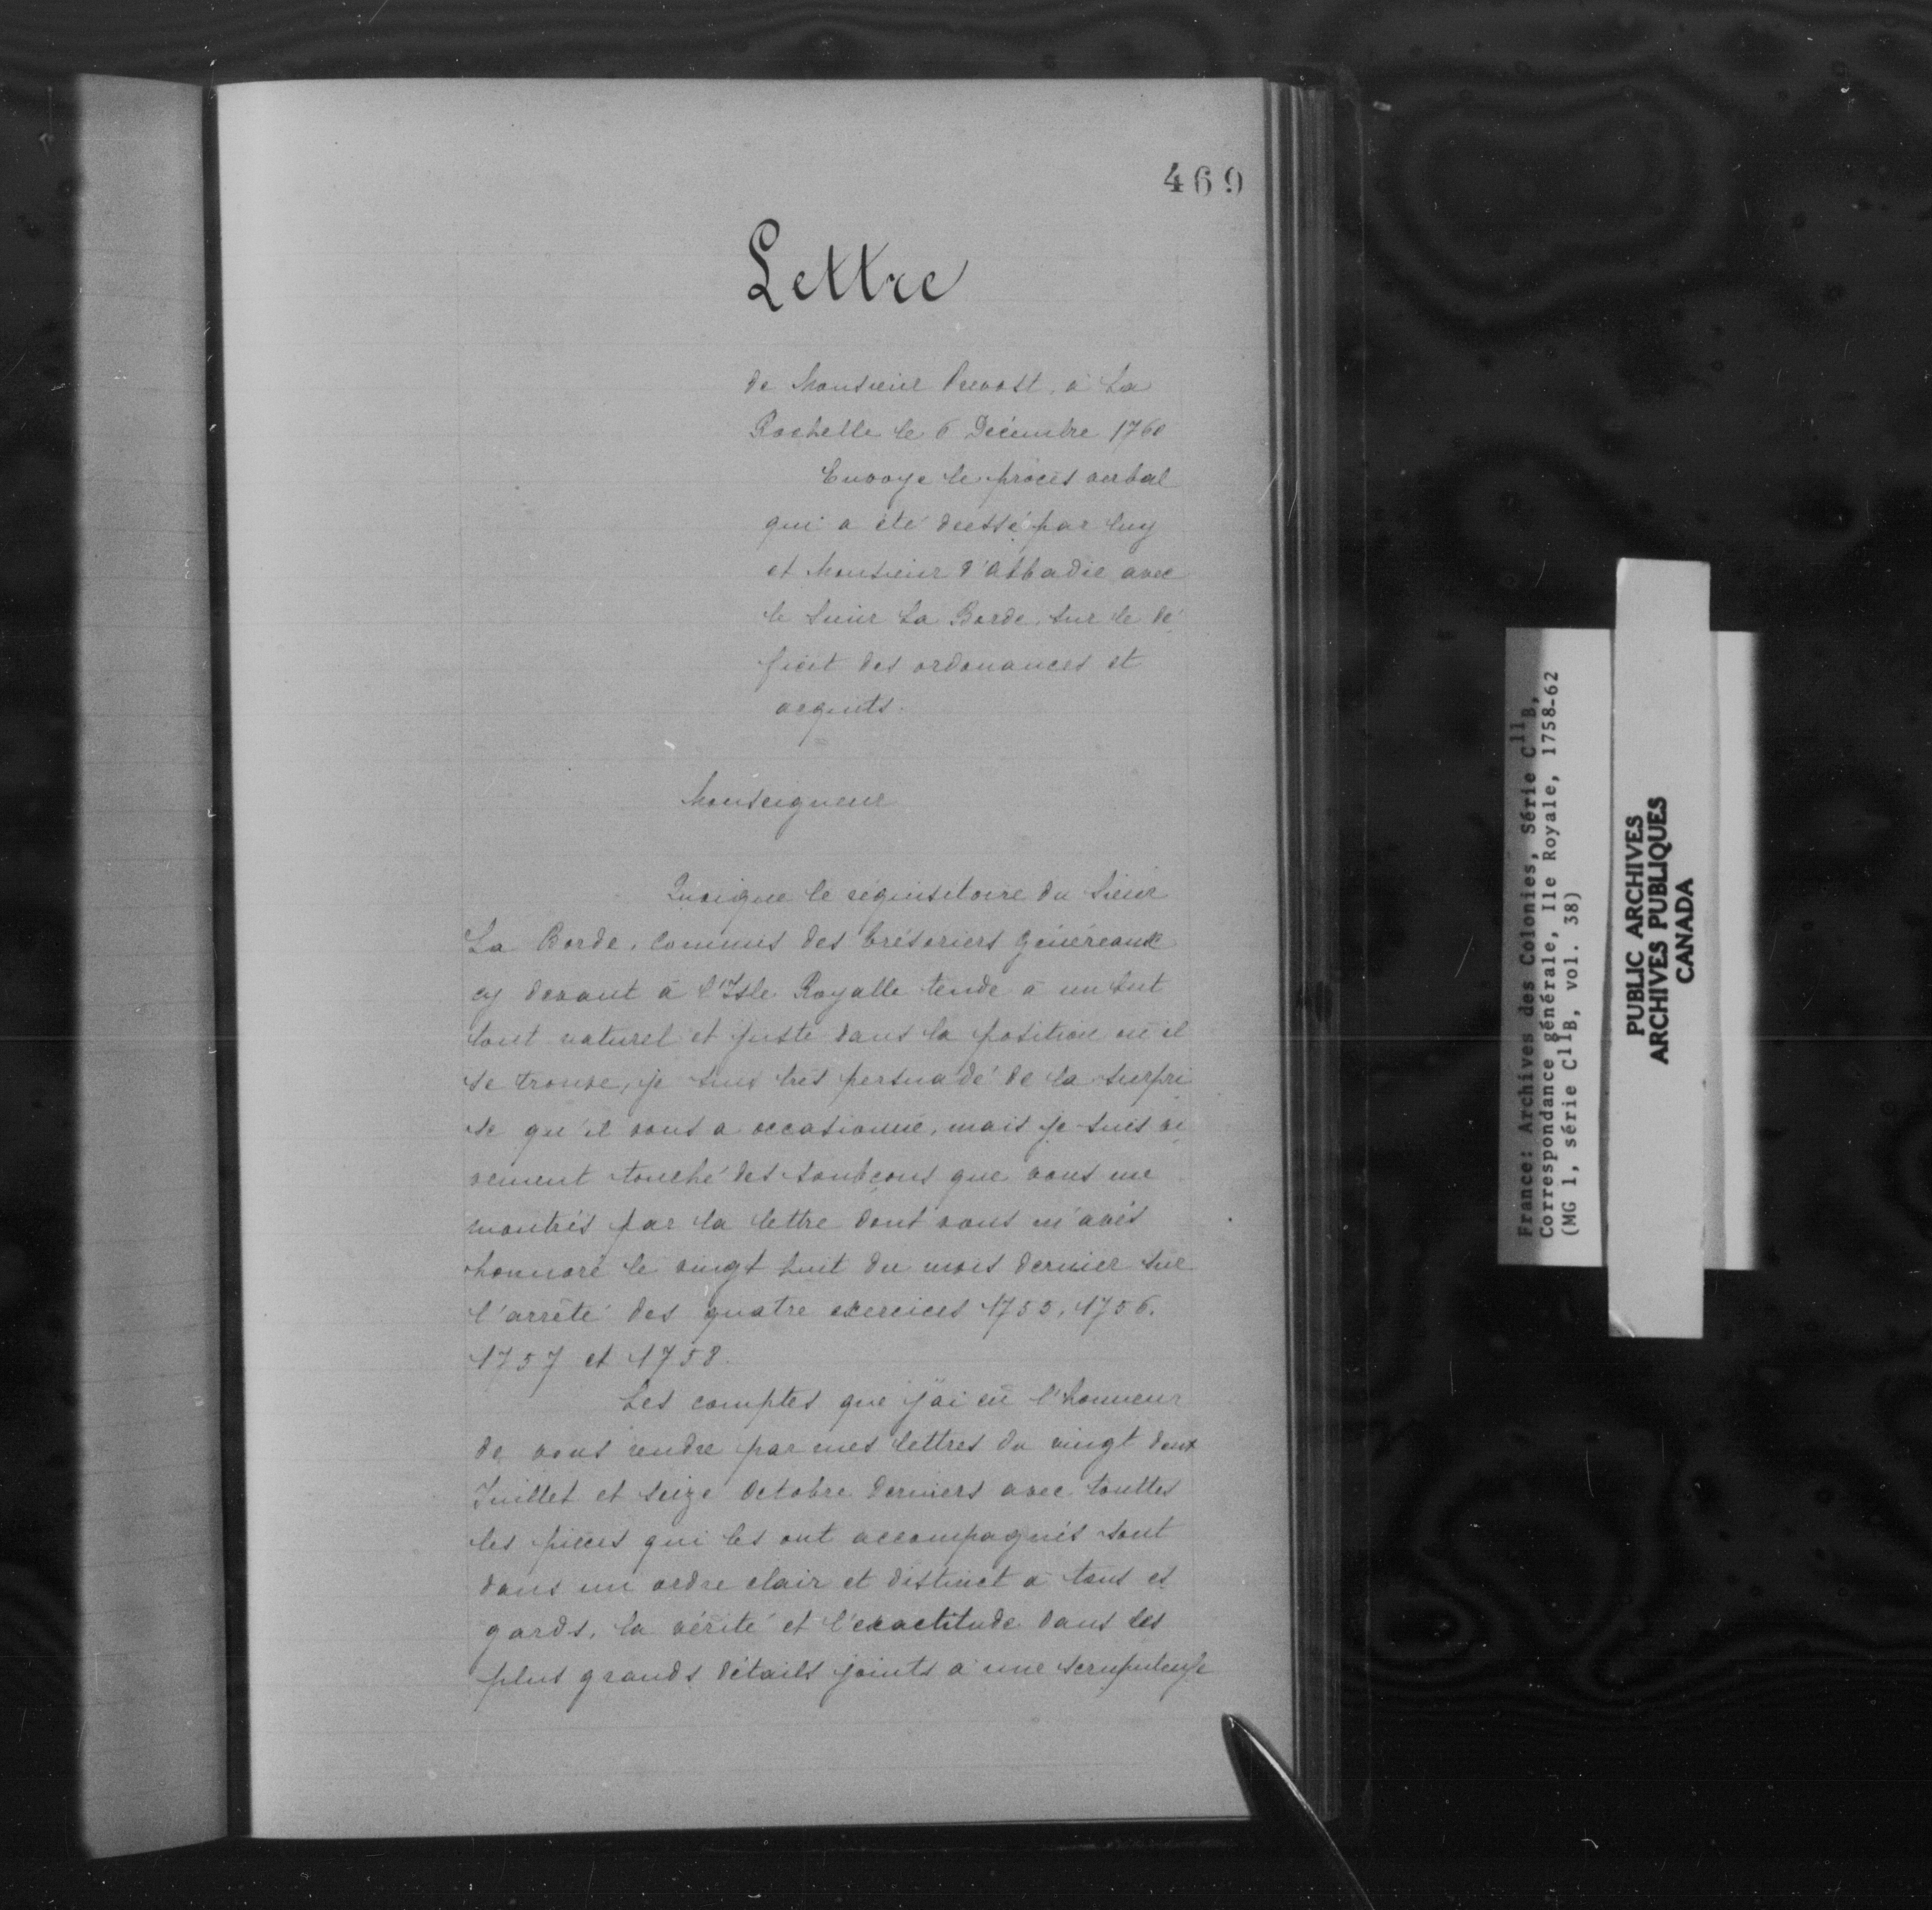 469
Lettre
de Monsieur Prevost, à La
Rochelle le 6 Décembre 1760
Envoye le procés verbal
qui a été dressé par luy
et Monsieur d'Abbadie avec
le Sieur La Borde, sur le dé
ficit des ordonances et
acquits.
Monseigneur
Quoique le réquisitoire du Sieur
La Borde, Commis des trésoriers généreaux
cy devant à l'Isle Royalle tende à un but
tout naturel et juste dans la position où il
se trouve, je suis très persuadé de la surpri
se qu'il vous a occasionné, mais je suis vi
vement touché des soubçons que vous me
montrés par la lettre dont vous m'avés
honnoré le vingt huit du mois dernier sur
l'arrêté des quatre exercices 1755, 1756.
1757 et 1758.
Les comptes que j'ai eû l'honneur
de vous rendre par mes lettres du vingt deux
Juillet et seize Octobre derniers avec touttes
les pieces qui les ont accompagnés sont
dans un ordre clair et distinct à tous es
gards, la vérité et l'exactitude dans les
plus grands détails joints à une scrupuleuse
France: Archives des Colonies, Série C11B,
Correspondance générale, Ile Royale, 1758-62
(MG 1, série C11B, vol. 38)
PUBLIC ARCHIVES
ARCHIVES PUBLIQUES
CANADA